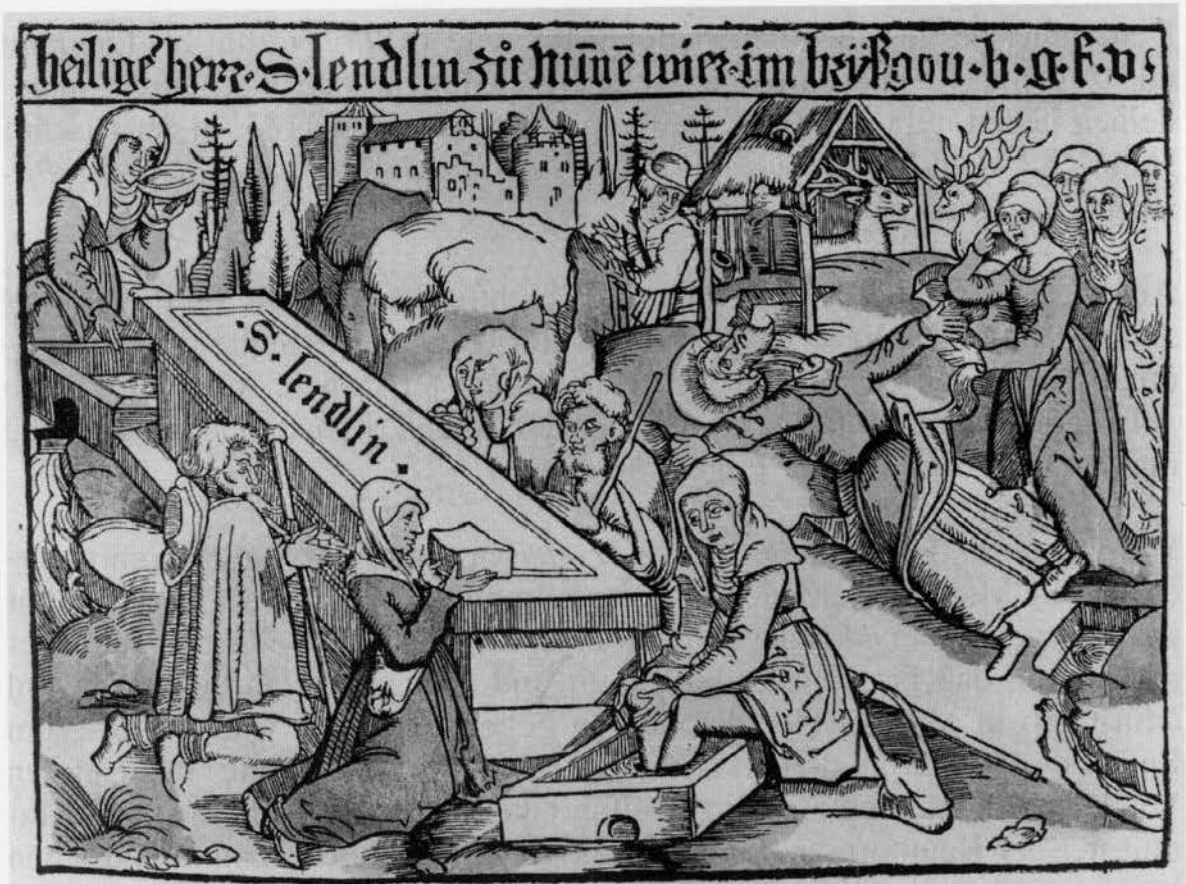 heilige' herr·S·lendlin zů Nūnē wier·im bryßgou·b·g·f·v·s
·S·lendlin·